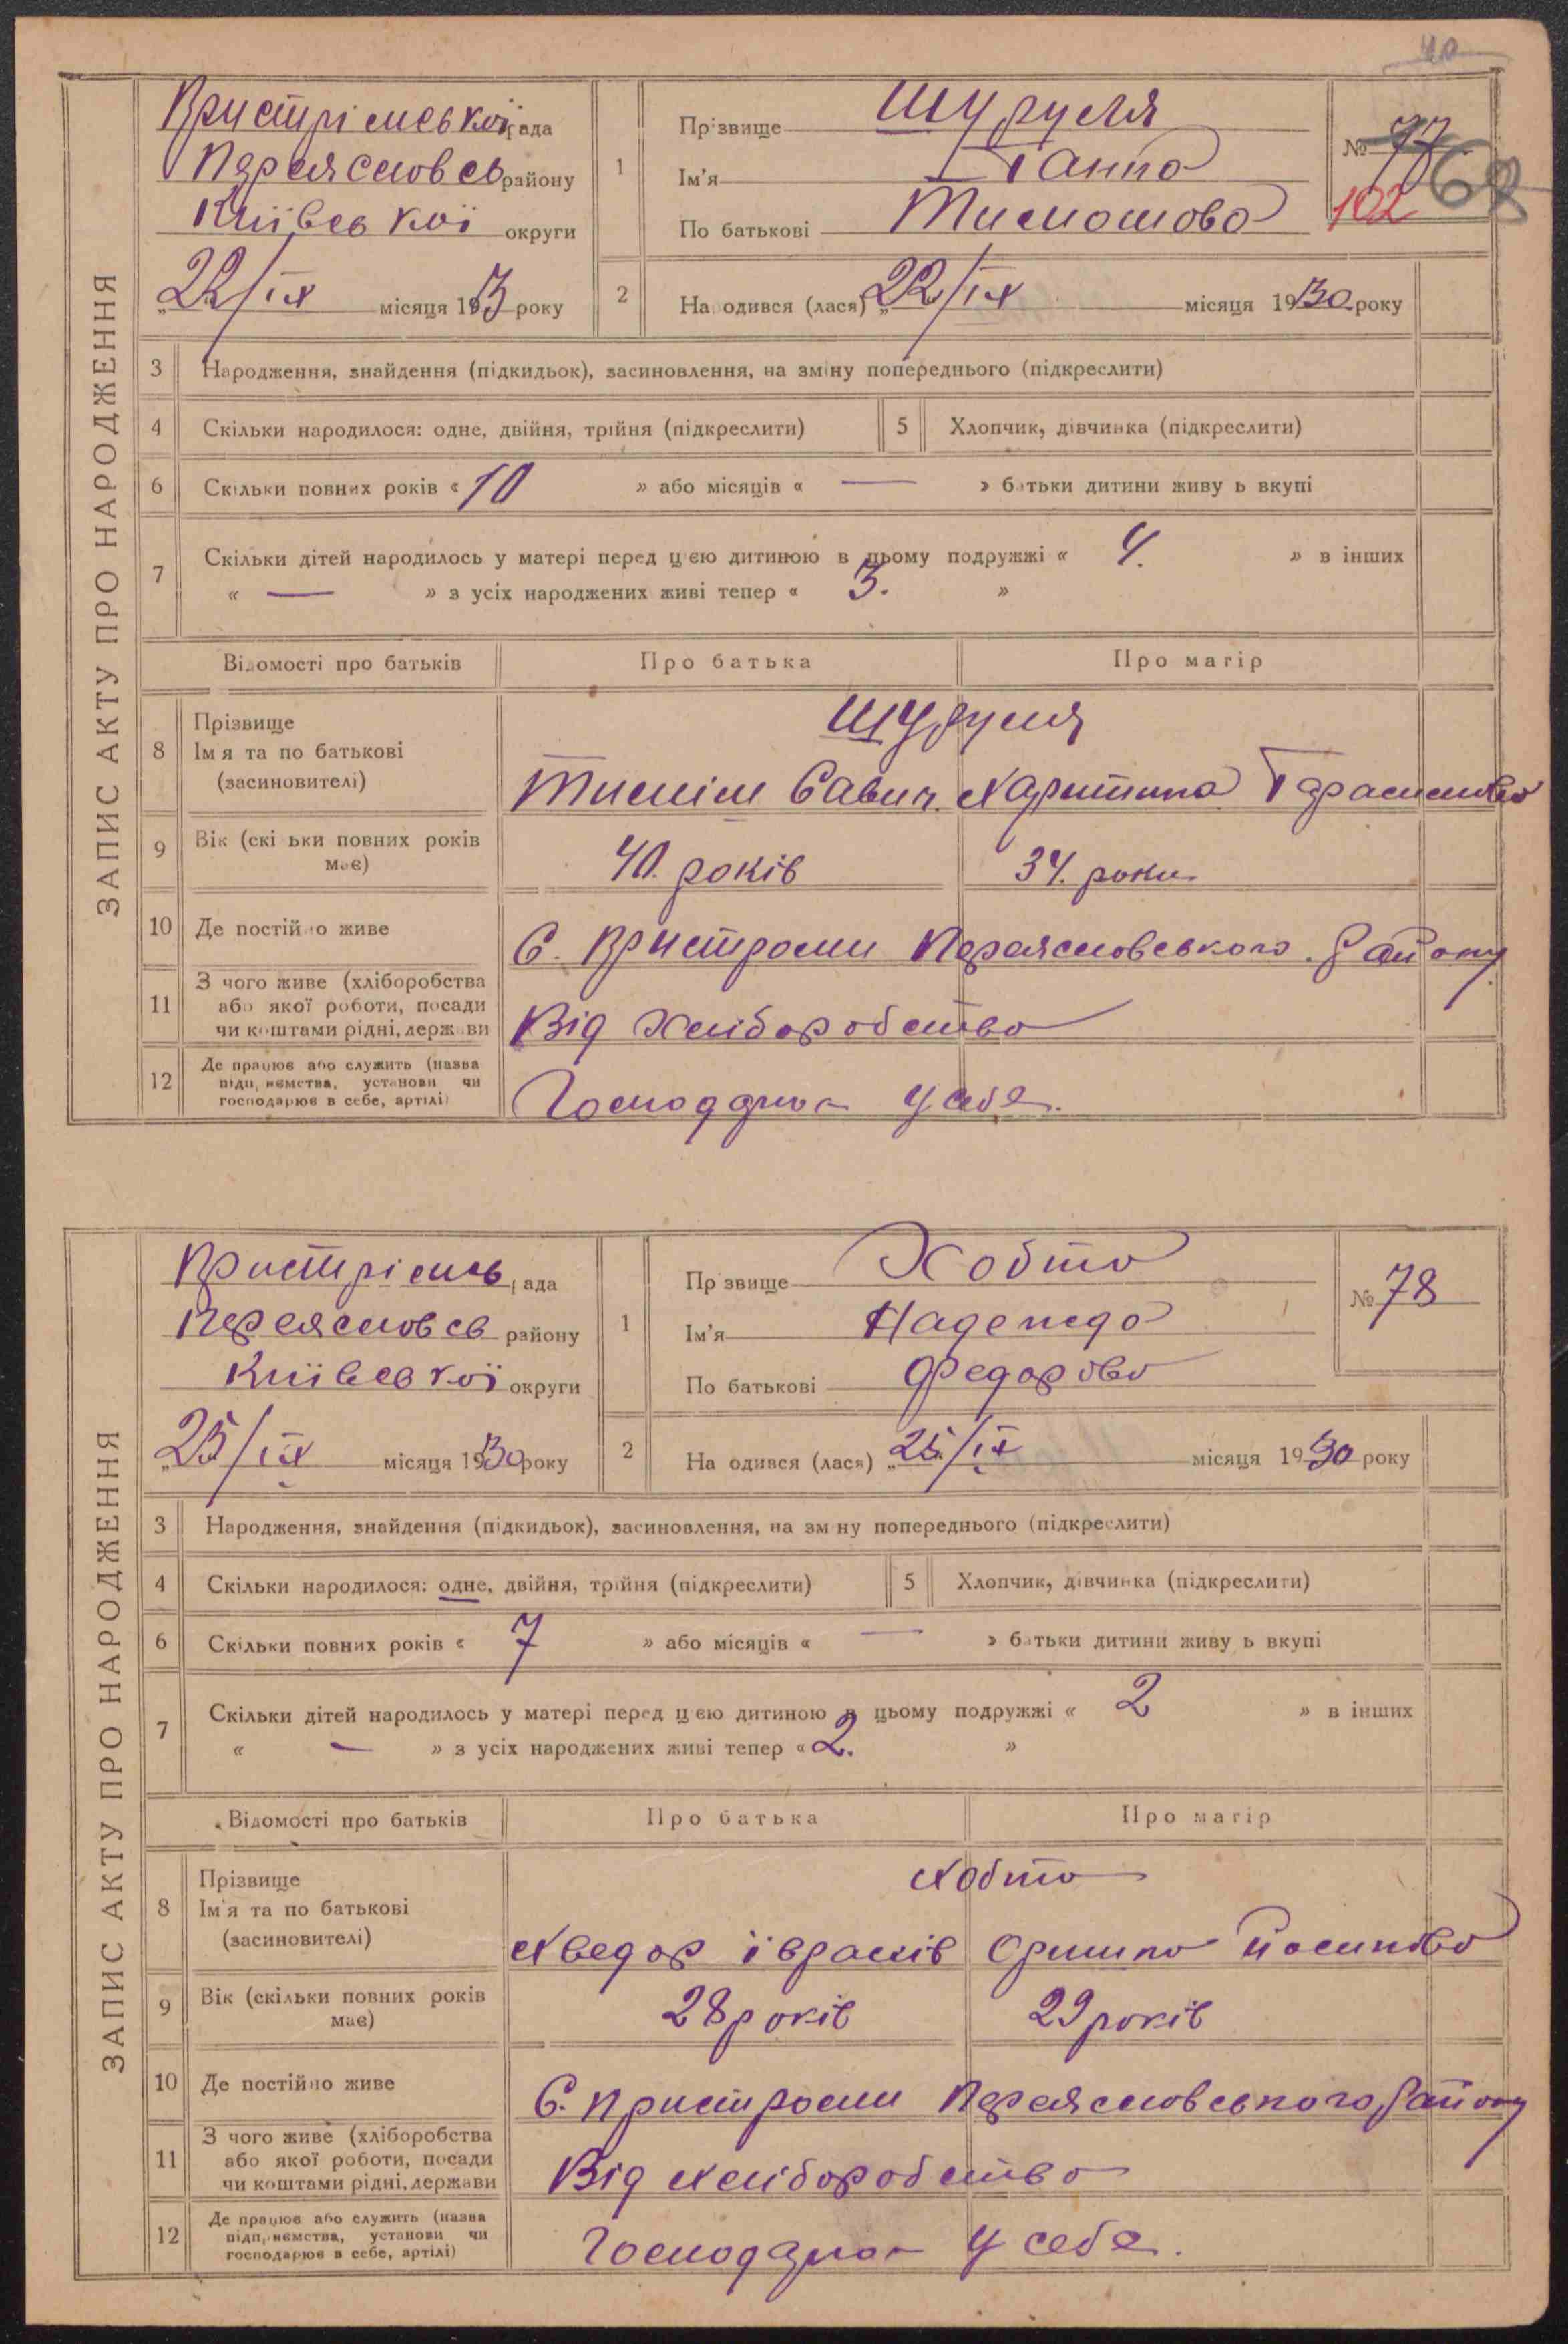 40
ЗАПИС АКТУ ПРО НАРОДЖЕННЯ
Пристрімської рада
Переяславсь району
Київської округи
„22/ІХ місяця 193 року
1 Прізвище Шуруля
Ім'я Ганна
По батькові Тимошова
№ 77 68
102
2 Народився (лася) „22/ІХ місяця 1930 року
3 Народження, знайдення (підкидьок), засиновлення, на зміну попереднього (підкреслити)
4 Скільки народилося: одне, двійня, трійня (підкреслити) 5 Хлопчик, дівчинка (підкреслити)
6 Скільки повних років « 10 » або місяців « — » батьки дитини живуть вкупі
7 Скільки дітей народилось у матері перед цією дитиною в цьому подружжі « 4. » в інших
« — » з усіх народжених живі тепер « 3. »
Відомості про батьків Про батька Про матір
8 Прізвище Шуруля
Ім'я та по батькові
(засиновителі) Тиміш Савич Харитина
9 Вік (скільки повних років має) 40. років 34. роки
10 Де постійно живе С. Пристроми Переяславського Району
11 З чого живе (хліборобства
або якої роботи, посади
чи коштами рідні, держави Від хліборобства
12 Де працює або служить (назва
підприємства, установи чи
господарює в себе, артілі) Господарює у себе.
ЗАПИС АКТУ ПРО НАРОДЖЕННЯ
Пристрімсь рада
Переяславсь району
Київської округи
„25/ІХ місяця 1930 року
1 Прізвище Хобта
Ім'я Надежда
По батькові Федорова
№ 78
2 Народився (лася) „25/ІХ місяця 1930 року
3 Народження, знайдення (підкидьок), засиновлення, на зміну попереднього (підкреслити)
4 Скільки народилося: одне, двійня, трійня (підкреслити) 5 Хлопчик, дівчинка (підкреслити)
6 Скільки повних років « 7 » або місяців « — » батьки дитини живуть вкупі
7 Скільки дітей народилось у матері перед цією дитиною в цьому подружжі « 2 » в інших
« — » з усіх народжених живі тепер « 2. »
Відомості про батьків Про батька Про матір
8 Прізвище Хобта
Ім'я та по батькові
(засиновителі) Хведор Оришка Йосипова
9 Вік (скільки повних років має) 28 років 29 років
10 Де постійно живе С. Пристроми Переяславського Району
11 З чого живе (хліборобства
або якої роботи, посади
чи коштами рідні, держави Від хліборобства
12 Де працює або служить (назва
підприємства, установи чи
господарює в себе, артілі) Господарює у себе.